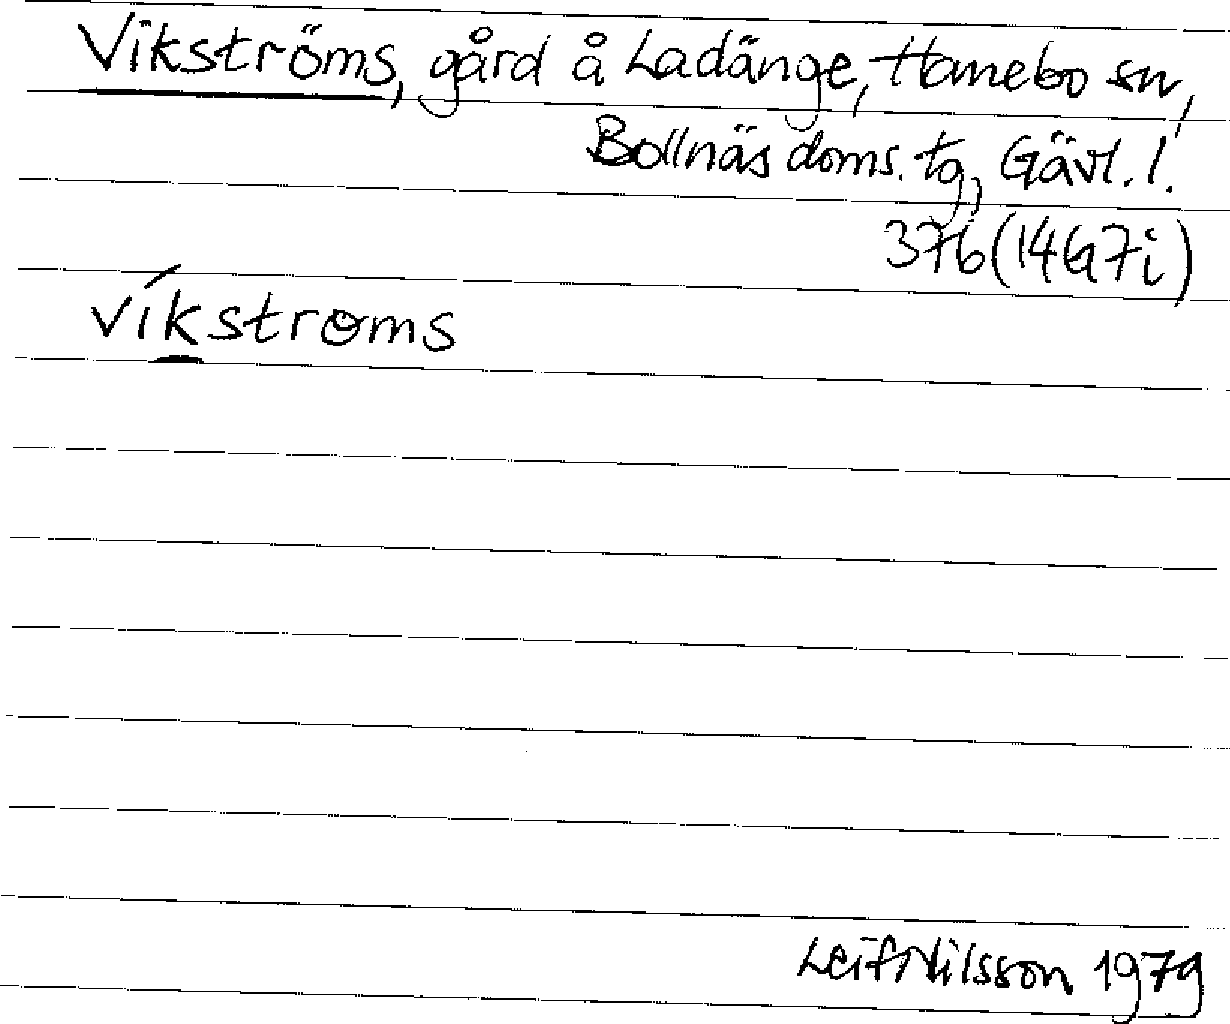 Vikströms, gård å Ladänge, Hanebo sn,
Bollnäs doms. tg, Gävl. l.
376 (14G7i)
víkstrɵms
Leif Nilsson 1979